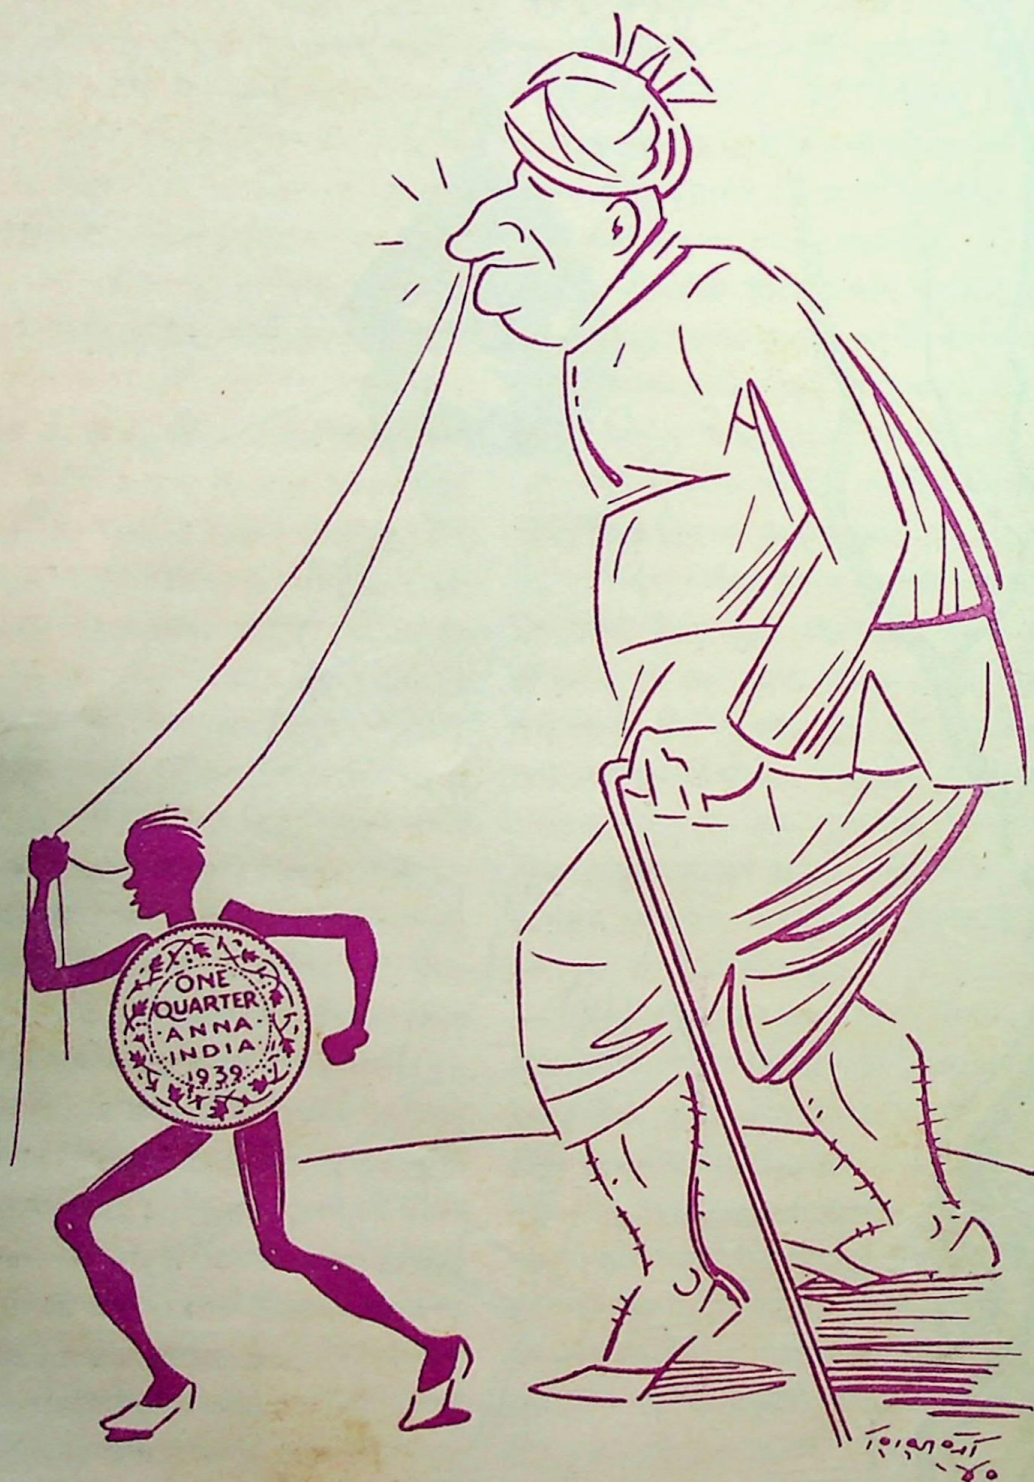 ONE
QUARTER
ANNA
INDIA
1939